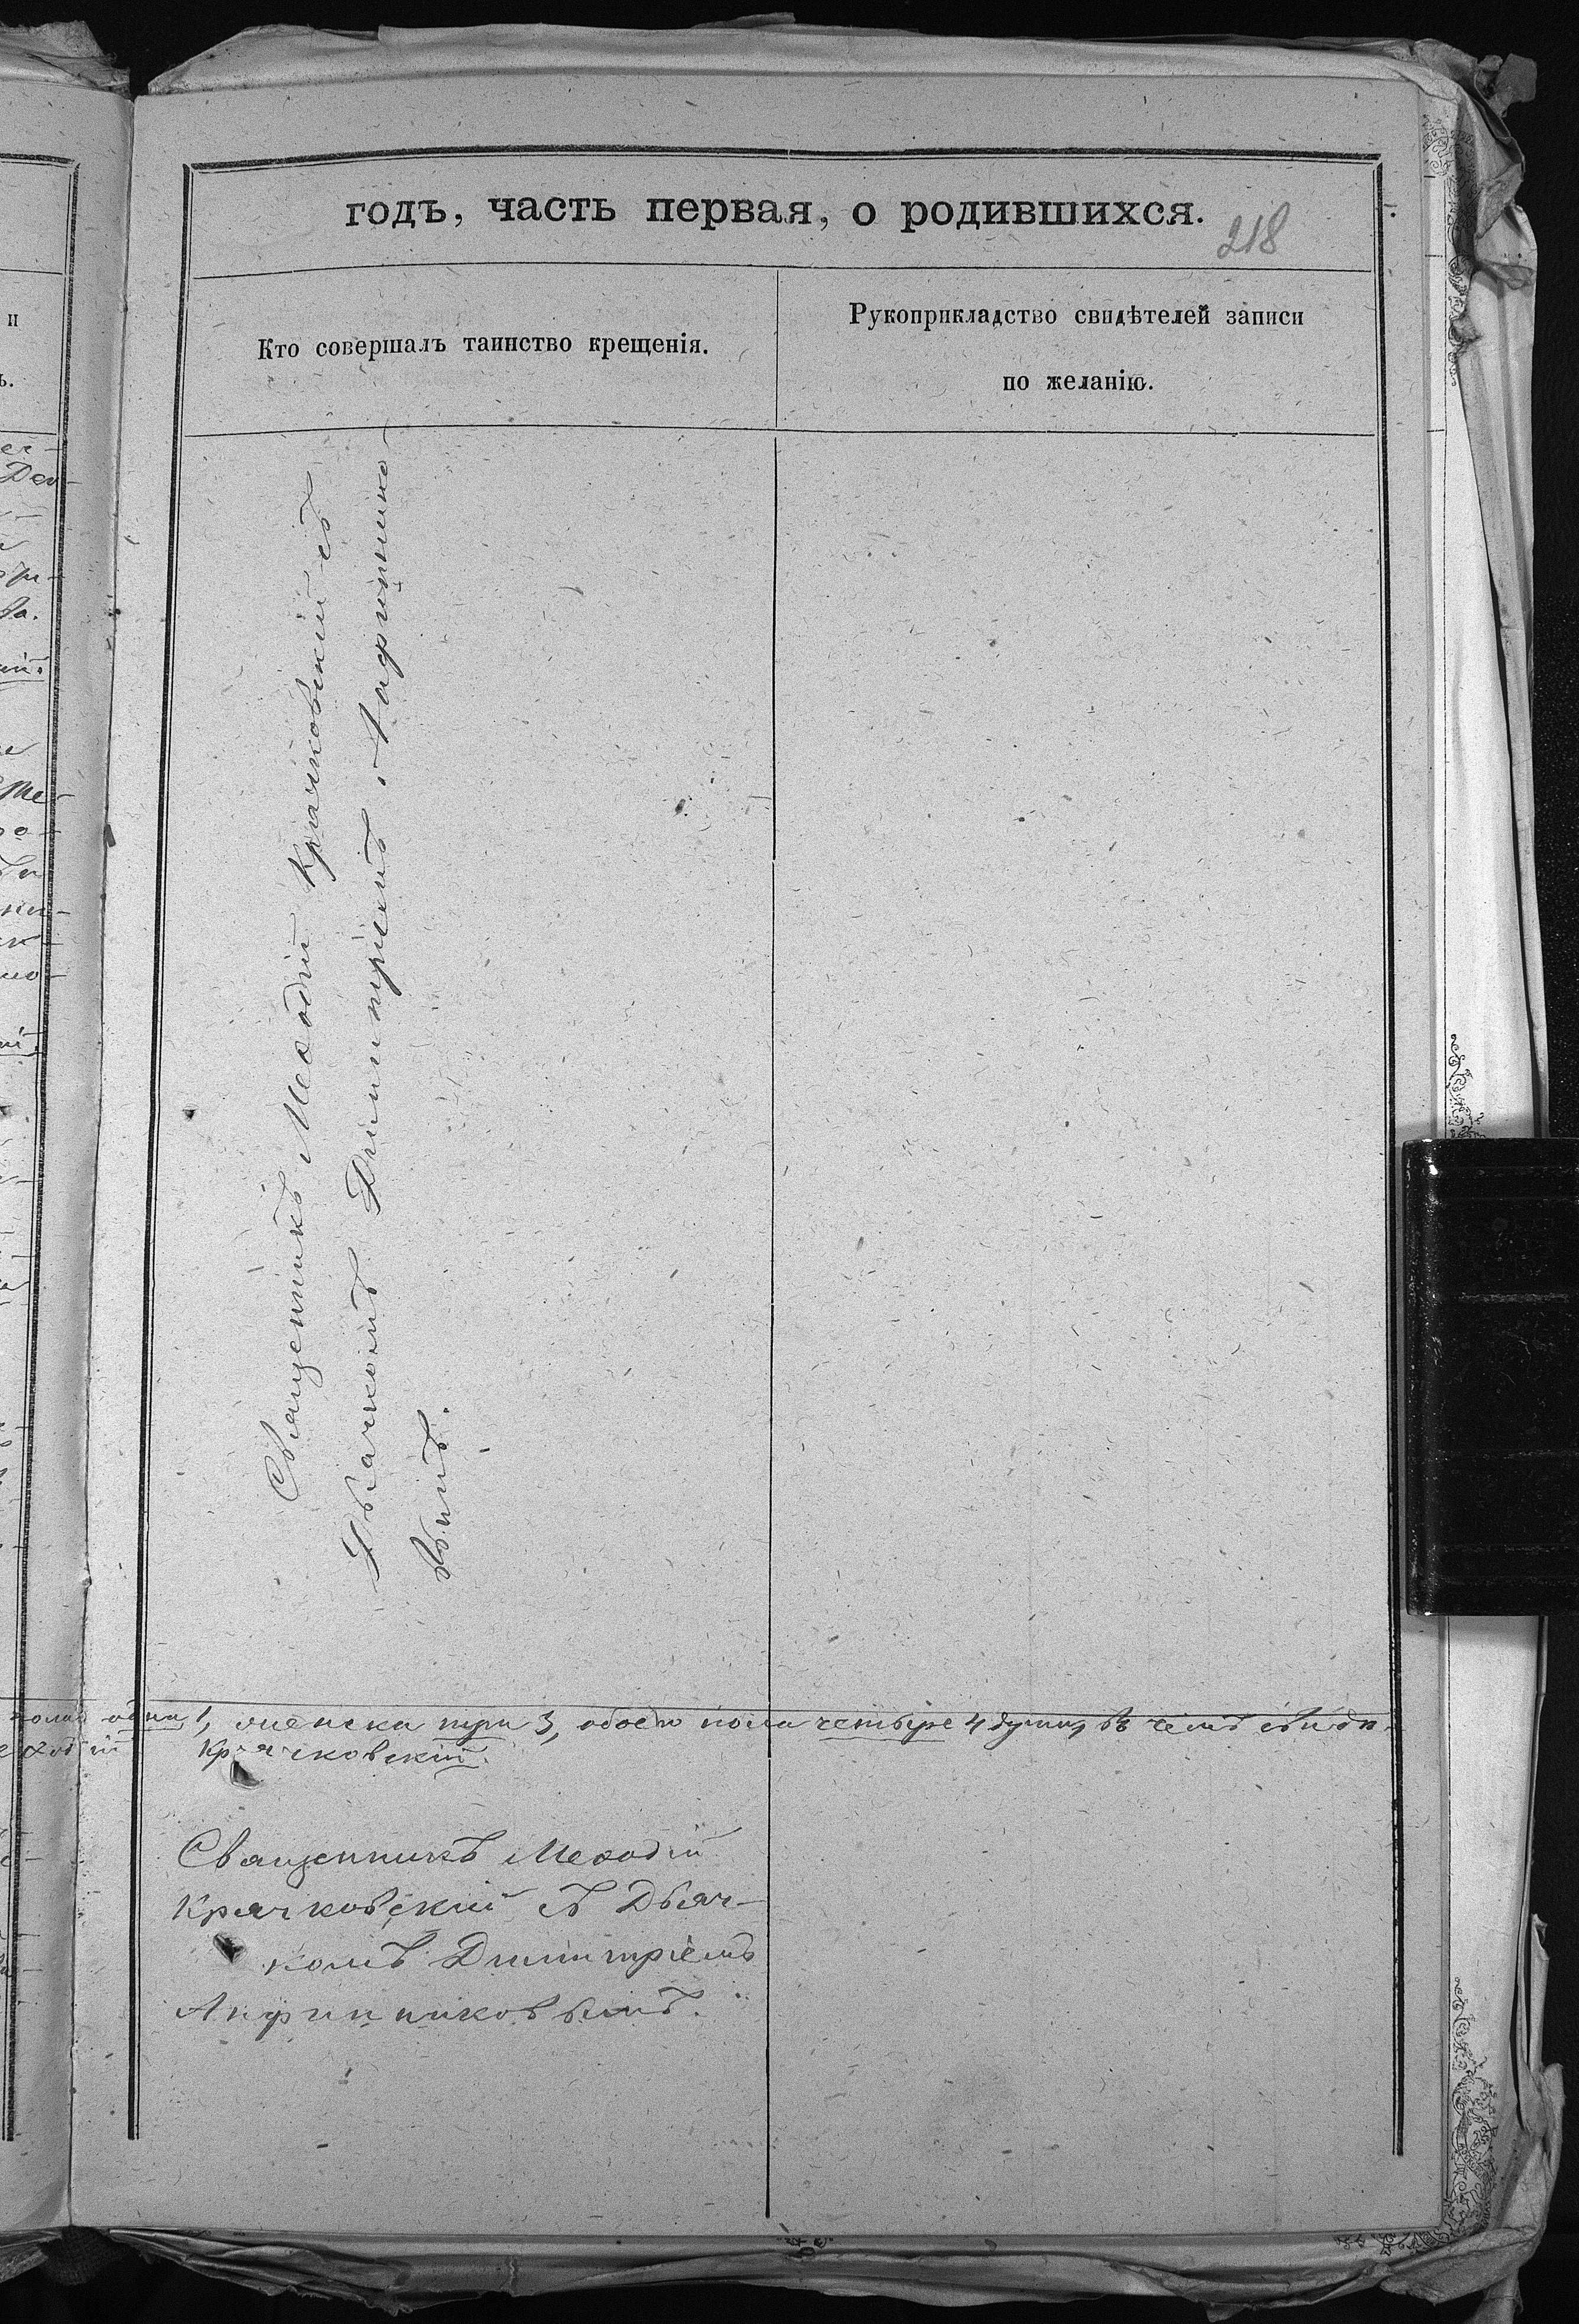 годъ, часть первая, о родившихся.
218
Кто совершалъ таинство крещенія.
Рукоприкладство свидѣтелей записи
по желанію.
Священникъ Меѳодій Крячковскій съ
Дьячкомъ Димитріемъ
вымъ.
1, женска три 3, обоего пола четыре 4 души, въ чемъ свидѣ-
Крячковскій.
Священникъ Меѳодій
Крячковскій съ Дьяч-
комъ Димитріемъ